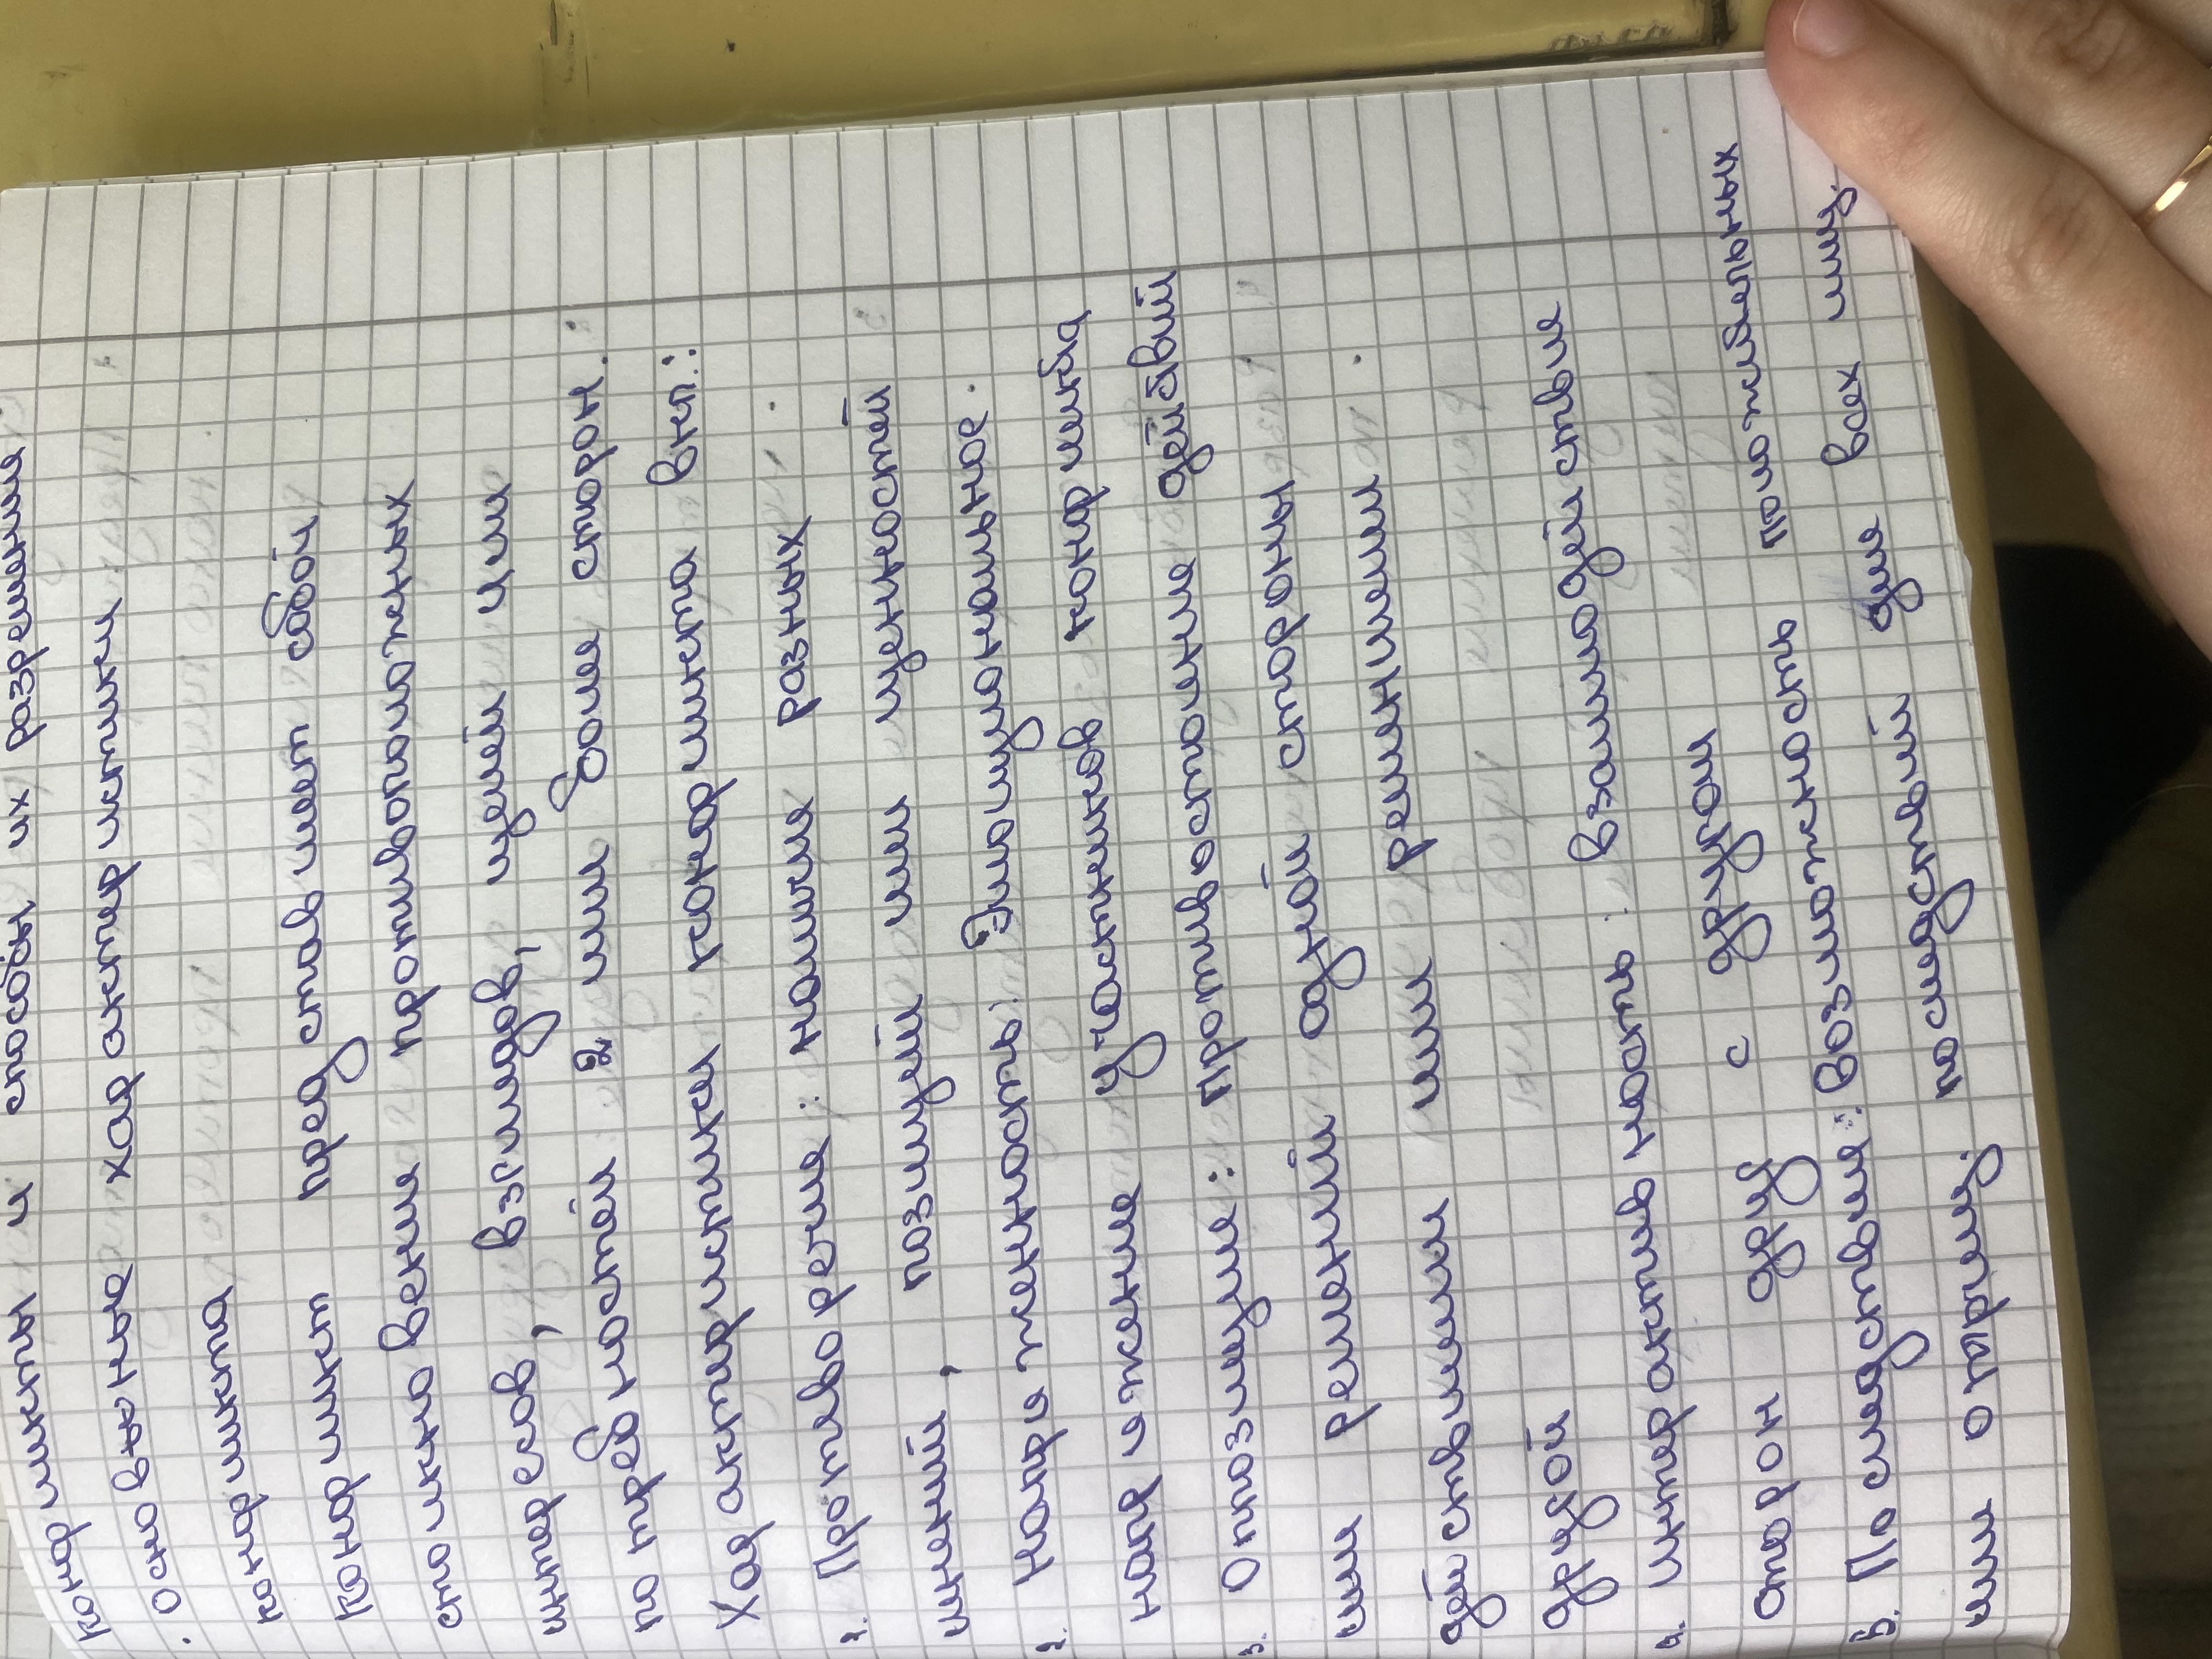 конфликты и способы их разрешения
. основные характеристики
конфликта
Конфликт представляет собой
столкновение противоположных
интересов, взглядов, целей или
потребностей 2 или более сторон.
Характеристики конфликта вкл.:
1. Противоречие: наличие разных
мнений, позиций или ценностей
2. напряженность: Эмоциональное
напряжение участников конфликта
3. Оппозиция: противостояние действий
или решений одной стороны
действиям или решениям
другой
4. интерактивность: взаимодействие
сторон друг с другом
5. Последствия: Возможность положительных
или отриц. последствий для всех лиц.